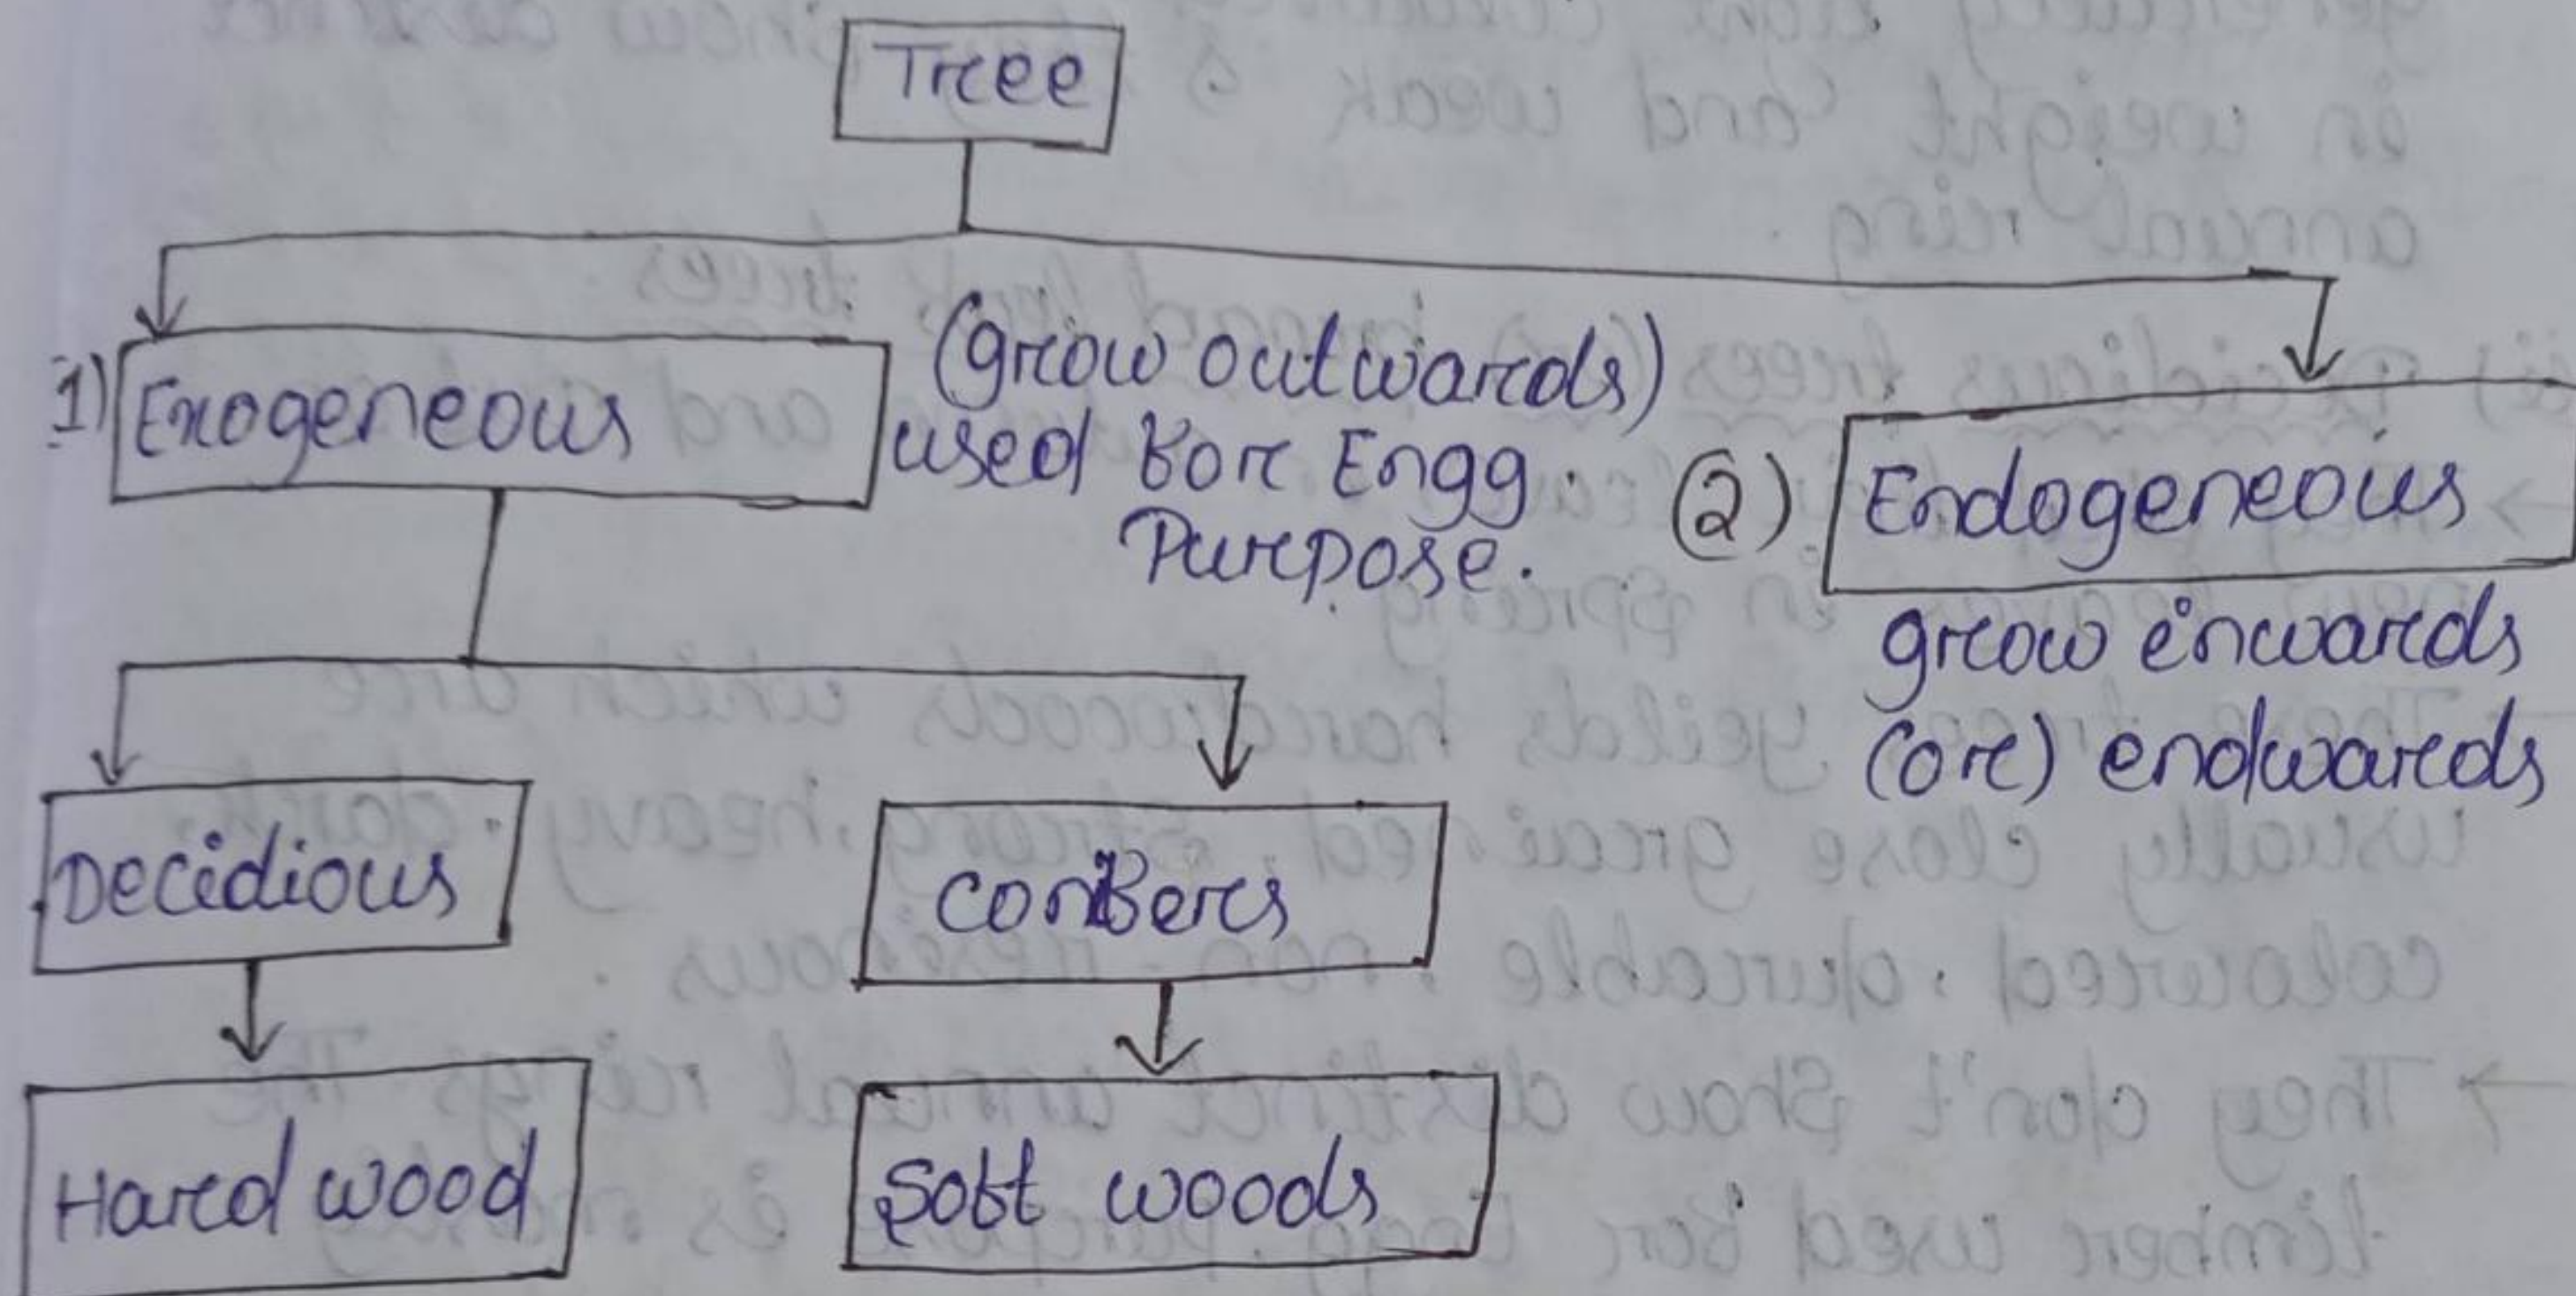 Tree
1) Exogeneous
(grow outwards)
used for Engg.
Purpose.
(2) Endogeneous
grow inwards
(or) endwards
Decidious
conifers
Hard wood
Soft woods